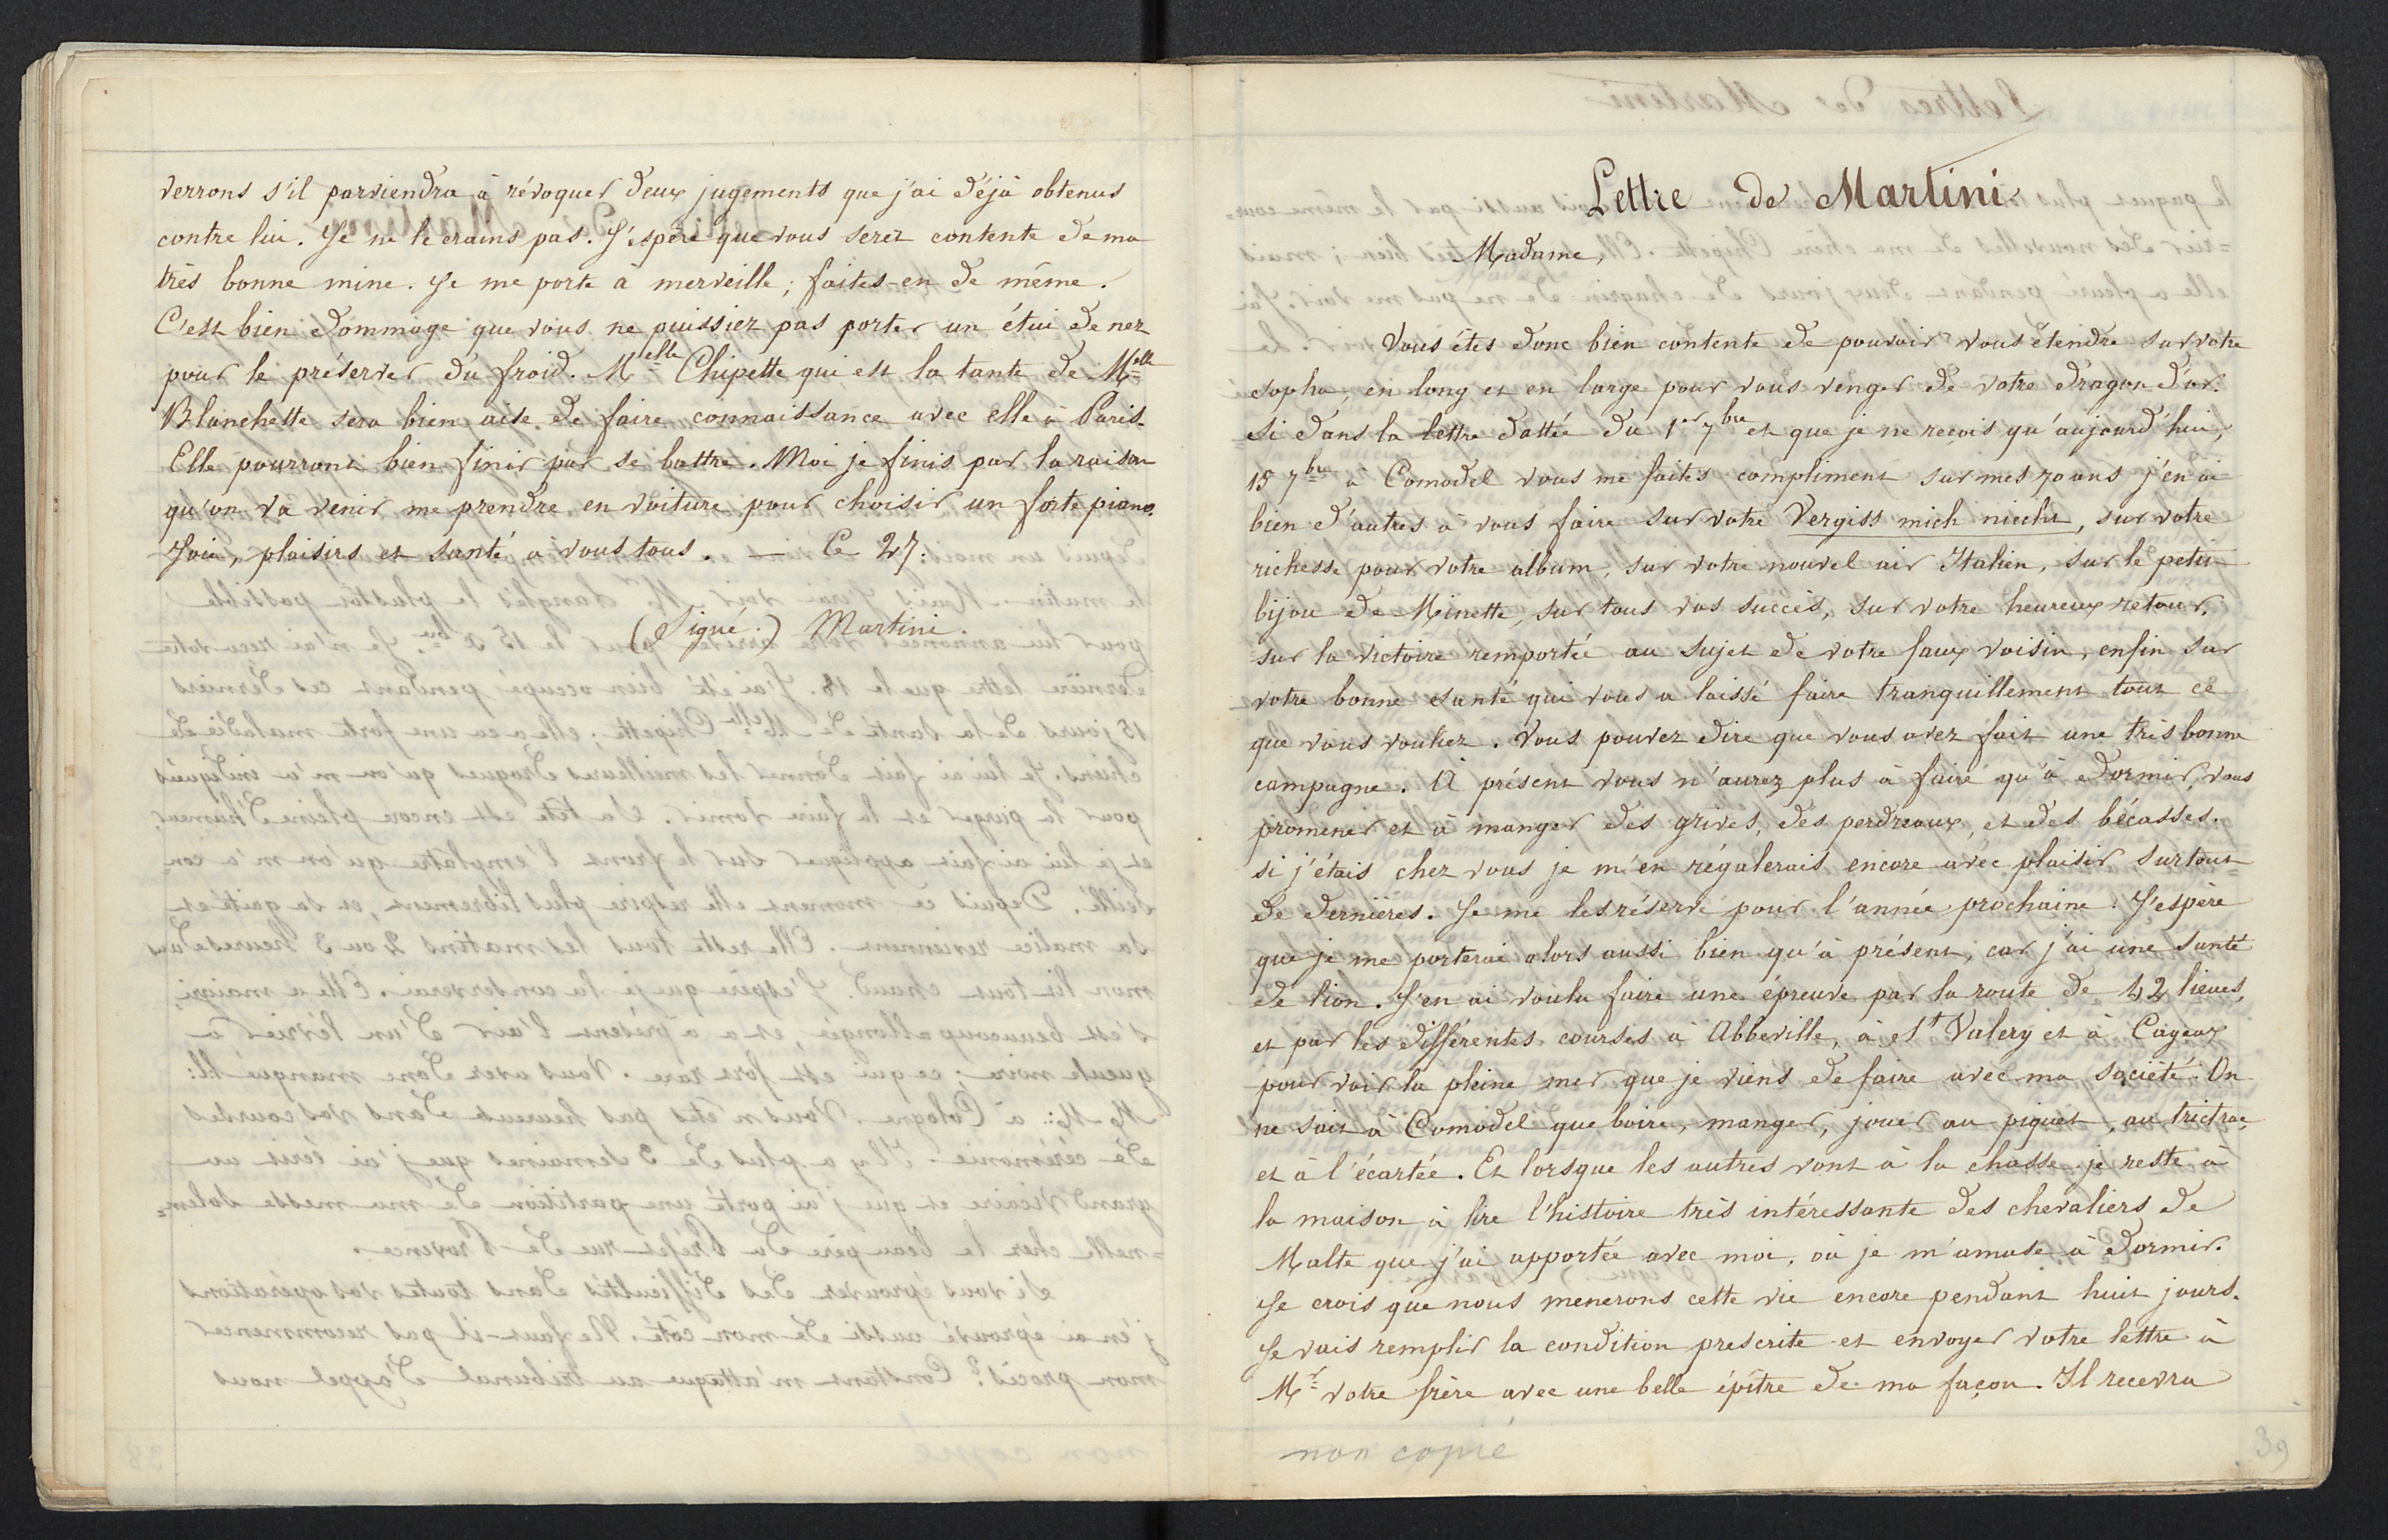 verrons s'il parviendra à révoquer deux jugements que j'ai déjà obtenus
contre lui. Je ne le crains pas. J'espère que vous serez contente de ma
très bonne mine. Je me porte à merveille; faites-en de même.
C'est bien dommage que vous ne puissiez pas porter un étui de nez
pour le préserver du froid. Melle Chipette qui est la tante de Melle
Blanchette sera bien aise de faire connaissance avec elle à Paris.
Elle pourront bien finir par se battre. Moi je finis par la raison
qu'on va venir me prendre en voiture pour choisir un forte piano.
Joie, plaisirs et santé à vous tous. — Ce 27.
(Signé.) Martini.
Lettre de Martini.
Madame,
Vous êtes donc bien contente de pouvoir vous étendre sur votre
sopha, en long et en large pour vous venger de votre dragon d'or.
Si dans la lettre dattée du 1er 7bre et que je ne reçois qu'aujourd'hui,
15 7bre à Comodel vous me faites compliment sur mes 70 ans j'en ai
bien d'autres à vous faire sur votre Vergiss mich niecht, sur votre
richesse pour votre album, sur votre nouvel air Italien, sur le petit
bijou de Minette, sur tous vos succès, sur votre heureux retour,
sur la victoire remportée au sujet de votre faux voisin, enfin sur
votre bonne santé qui vous a laissé faire tranquillement tout ce
que vous vouliez. Vous pouvez dire que vous avez fait une très bonne
campagne. A présent vous n'aurez plus à faire qu'à dormir, vous
promener et à manger des grives, des perdreaux, et des bécasses.
si j'étais chez vous je m'en régalerais encore avec plaisir surtout
de dernières. Je me les réserve pour l'année prochaine. J'espère
que je me porterai alors aussi bien qu'à présent, car j'ai une santé
de lion. J'en ai voulu faire une épreuve par la route de 42 lieues,
et par les différentes courses à Abbeville, à St Valery et à Cayeux
pour voir la pleine mer que je viens de faire avec ma société. On
ne sait à Comodel que boire, manger, jouer au piquet, au trictrac,
et à l'écartée. Et lorsque les autres vont à la chasse je reste à
la maison à lire l'histoire très intéressante des chevaliers de
Malte que j'ai apportée avec moi, où je m'amuse à dormir.
Je crois que nous menerons cette vie encore pendant huit jours.
Je vais remplir la condition prescrite et envoyer votre lettre à
Mr votre frère avec une belle épître de ma façon. Il recevra
non copié
39